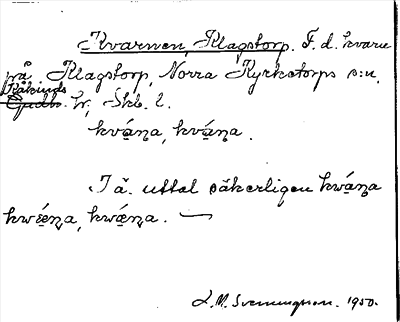 Kvarnen, Klagstorp. F.d. kvarn
på Klagstorp, Norra Kyrketorps s:n,
Kåkinds
Gudh. hr, Skb. l.
kvá̤ɳa, kvǻɳa.
I ä. uttal säkerligen kwá̤ɳa
kwǽɳa, kwǽɳa. —
L.M. Svenungsson. 1950.